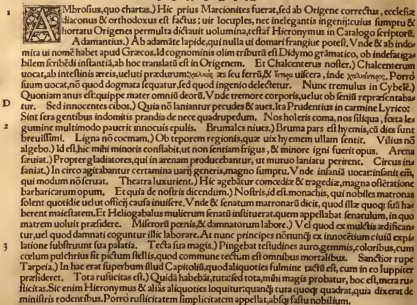 AMbrosius, quo chartas.) Hic prius Marcionites fuerat, sed ab Origene correctus, ecclesiæ
diaconus & orthodoxus est factus: uir locuples, nec inelegantis ingenij: cuius sumptu &
hortatu Origenes permulta dictauit uolumina, testaf Hieronymus in Catalogo scriptorũ.
Adamantius.) Ab adamãte lapide, qui nulla ui domari frangiue potest. Vnde & ab indo
mita ui nomẽ habet apud Græcos. Id cognominis olim tributũ est Didymo grãmatico, ob indefatiga-
bilem scribẽdi instantiã, ab hoc translatũ est in Origenem. Et Chalcenteron nosser.) Chalcenterum
uocat, ab intestinis æreis, ueluti prædurum: χαλκὸς æs seu ferrũ, & uiscera, inde Porrò
suum uocat, nõ quod dogmata sequatur, sed quod ingenio delectetur. Nunc tremulus in Cybele.)
Quoniam anus est quippe mater omniũ deorũ. Vnde tremore corporis, uelut ob seniũ repræsentatur.
D
Sed innocentes cibos.) Quia nõ laniantur pecudes & aues. Ita Prudentius in carmine Lyrico:
Sint fera gentibus indomitis prandia de nece quadrupedum. Nos holeris coma, nos siliqua, fœta le-
2
gumine multimodo pauerit innocuis epulis. Brumalis niues.) Bruma pars est hyemis, cũ dies sunt
breuissimi. Ligna nõ coemam.) Ob teporem regionis, quæ uix hyemem ullam sentit. Vilius nõ
algebo.) Id est, hic mihi minoris constabit, ut non sentiam frigus, & minore igni fuerit opus. Arena
sæuiat.) Propter gladiatores, qui in arenam producebantur, ut mutuo laniatu perirent. Circus in-
saniat.) In circo agitabantur certamina uarij generis, magno sumptu. Vnde insaniã uocat: insanit em̃,
qui modum nõ seruat. Theatra luxurient.) Hic agebãtur comœdiæ & tragœdiæ, magna ostẽtatione
barbaricarum opum. Et quia de nostris dicendum.) Nostris, id est, monachis, qui nobiles matronas
solent quotidie uelut officij causa inuisere. Vnde & senatum matronarũ dicit, quod illæ quoque suã ha-
berent maiestatem. Et Heliogabalus mulierum senatũ instituerat, quem appellabat senaculum, in quo
matrem uoluit præsidere. Miserorũ pœnis, & damnatorum labore.) Vel quod ex mulctis ædificaren-
tur, uel quod damnati cogerunt illic laborare. At nunc principes nõ nunq̃ ex innocentium ciuiũ expi
3
latione substruunt sua palatia. Tecta sua magis.) Pingebat testudines auro, gemmis, coloribus, cum
cœlum pulchrius sit pictum stellis, quod commune tectum est omnibus mortalibus. Sanctior rupe
Tarpeia.) In hac erat superbum illud Capitoliũ, quod aliquoties fulmine tactũ est, cum in eo Iuppiter
præsideret. Tota rusticitas est.) Quidã habebãt, pura & sed tota, nihil magis probatur, hoc est, mera ru-
sticitas. Sic enim Hieronymus & alias aliquoties loquitur: quanq̃ tuta quoque quadrat, quia dixerat de
ministris rodentibus. Porrò rusticitatem simplicitatem appellat, absque fastu nobilium.